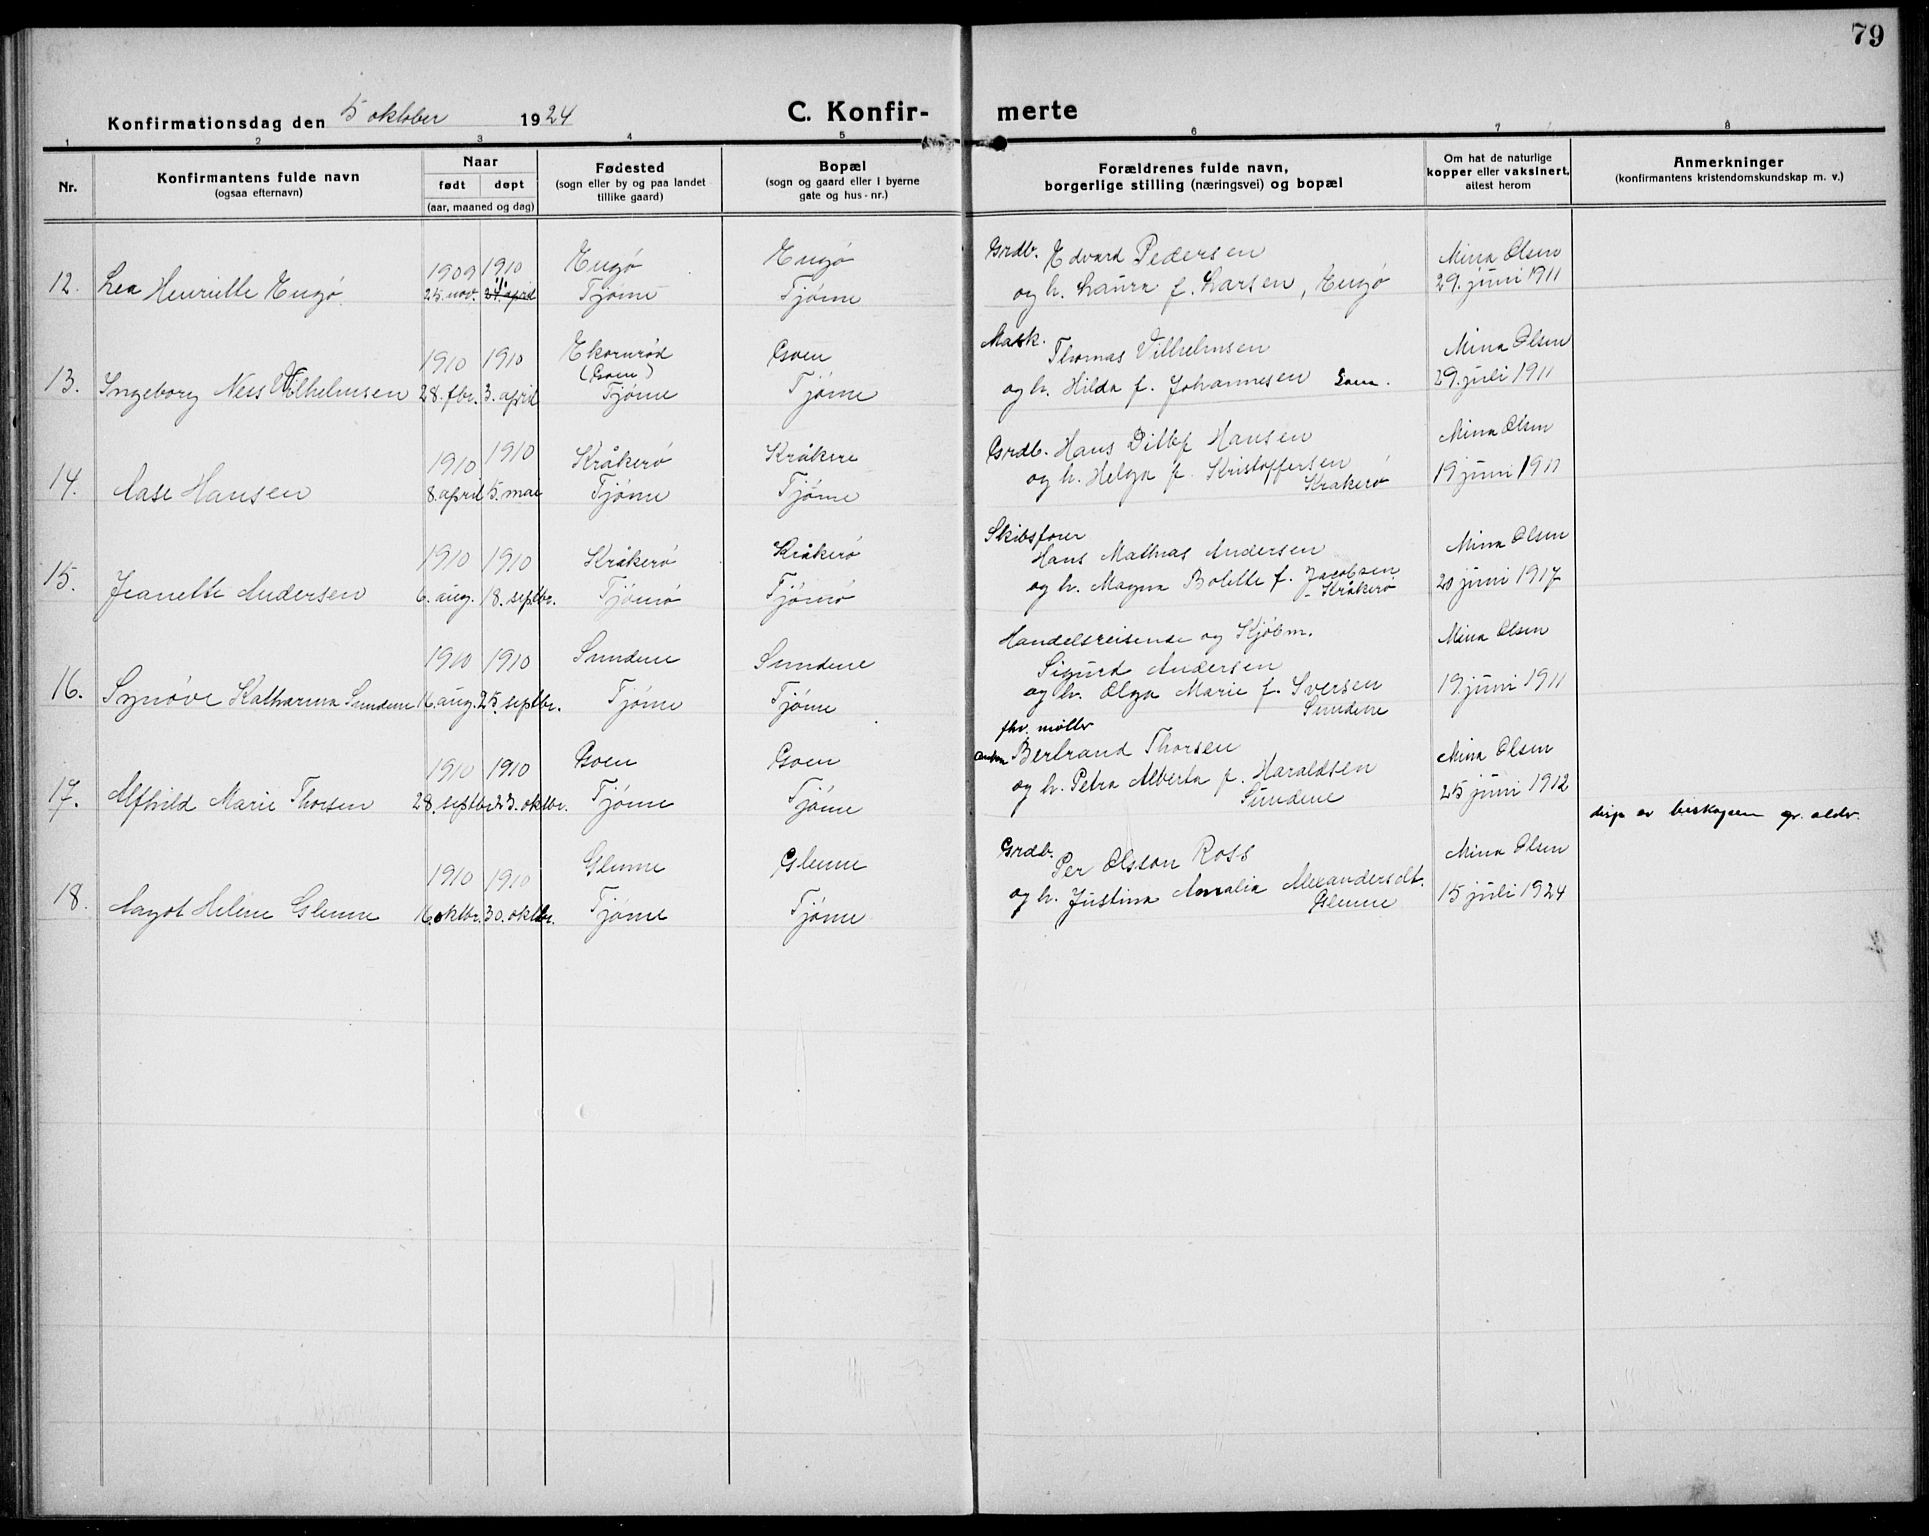 79
Konfirmationsdag den 5 oktober 1924
C. Konfir- merte
1 2 3 4 5 6 7 8
Nr.
Konfirmantens fulde navn
(ogsaa efternavn)
Naar
født døpt
(aar, maaned og dag)
Fødested
(sogn eller by og paa landet
tillike gaard)
Bopæl
(sogn og gaard eller i byerne
gate og hus-nr.)
Forældrenes fulde navn,
borgerlige stilling (næringsvei) og bopæl
Om hat de naturlige
kopper eller vaksinert,
attest herom
Anmerkninger
(konfirmantens kristendomskundskap m. v.)
1909 1910 Engø Engø Grdb. Edvard Pedersen Mina Olsen
12. Lea Henriette Engø 25. nov. 24. april Tjøme Tjøme og h. Laura f. Larsen, Engø 29. juni 1911
1910 1910 Ekornrød Goen Mask. Thomas Vilhelmsen Mina Olsen
(Goen)
13. Ingeborg Vilhelmsen 28. fbr. 3. april Tjøme Tjøme og h. Hilda f. Johannesen Goen. 29. juli 1911
1910 1910 Kråkerø Kråkere Grdb. Hans Ditlef Hansen Mina Olsen
14. Aase Hansen 8. april 5. mai Tjøme Tjøme og h. Helga f. Kristoffersen 19 juni 1911
Kråkerø
1910 1910 Kråkerø Kråkerø Skibsfører Mina Olsen
Hans Mathias Andersen
15. Jeanette Andersen 6. aug. 18. septbr. Tjømø Tjømø og h. Magna Bolette f. Jacobsen 20 juni 1917
- Kråkerø
1910 1910 Sundene Sundene Handelsreisende og Kjøbm. Mina Olsen
Sigurd Andersen
16. Synøve Katharina Sundene 16. aug. 25. septbr. Tjøme Tjøme og h. Olga Marie f. Iversen 19 juni 1911
Sundene
fhv. møller
1910 1910 Goen Goen Anton Bertrand Thorsen Mina Olsen
17. Alfhild Marie Thorsen 28. septbr. 23. oktbr. Tjøme Tjøme og h. Petra Alberta f. Haraldsen 25 juni 1912
Sundene
disp av biskopen gr. alder.
1910 1910 Glenne Glenne Grdb. Per Olsson Ross Mina Olsen
18. Aagot Helene Glenne 16. oktbr. 30. oktbr. Tjøme Tjøme og h. Justina Amalia Alexandersdt. 15 juli 1924
Glenne